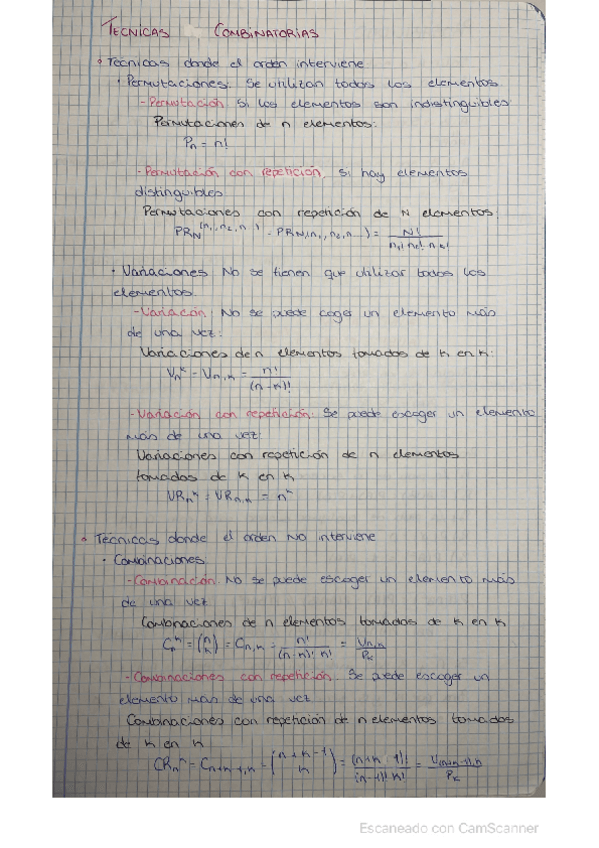 TECNICAS COMBINATORIAS
• Técnicas donde el orden interviene
• Permutaciones: Se utilizan todos los elementos
- Permutación si los elementos son indistinguibles
Permutaciones de n elementos:
Pn = n!
- Permutación con repetición, si hay elementos
distinguibles
Permutaciones con repetición de N elementos
= N! / n₁! n₂! nₖ!
• Variaciones No se tienen que utilizar todos los
elementos
- Variación No se puede coger un elemento más
de una vez:
Variaciones de n elementos tomados de k en k:
Vnᵏ = Vn,k = n! / (n-k)!
- Variación con repetición: Se puede escoger un elemento
más de una vez:
Variaciones con repetición de n elementos
tomados de k en k
VRnᵏ = VRn,k = nᵏ
• Técnicas donde el orden NO interviene
• Combinaciones
- Combinación No se puede escoger un elemento más
de una vez
Combinaciones de n elementos tomados de k en k
Cnᵏ = (n k) = Cn,k = n! / (n-k)! k! = Vn,k / Pk
- Combinaciones con repetición. Se puede escoger un
elemento más de una vez
Combinaciones con repetición de n elementos tomados
de k en k
CRnᵏ = Cn+k-1,k = (n+k-1 k) = (n+k-1)! / (n-1)! k! = V(n+k-1),k / Pk
Escaneado con CamScanner